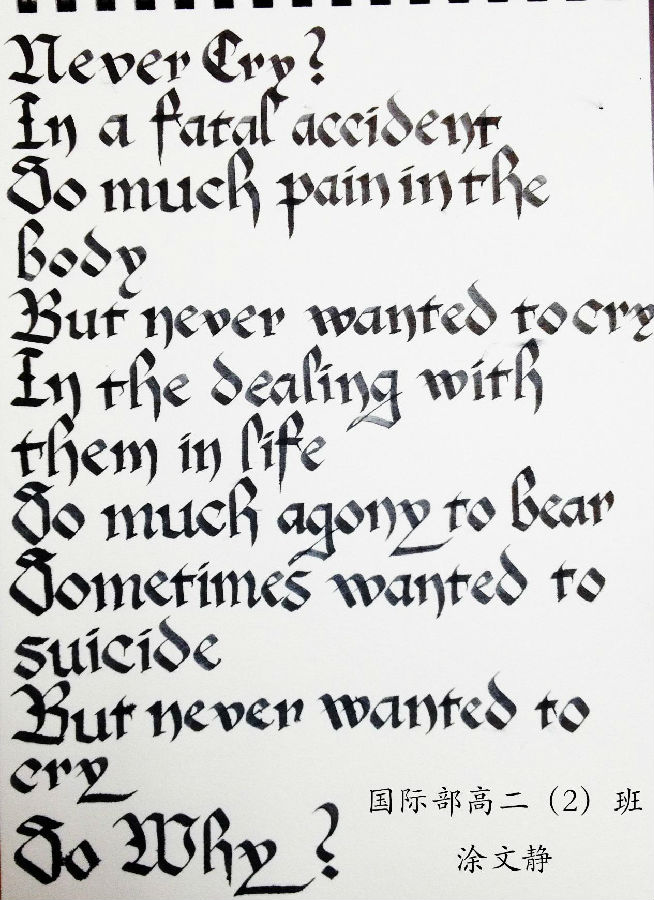 Never Cry?
In a fatal accident
So much pain in the
body
But never wanted to cry
In the dealing with
them in life
So much agony to bear
Sometimes wanted to
suicide
But never wanted to
cry
So Why?
国际部高二（2）班
涂文静